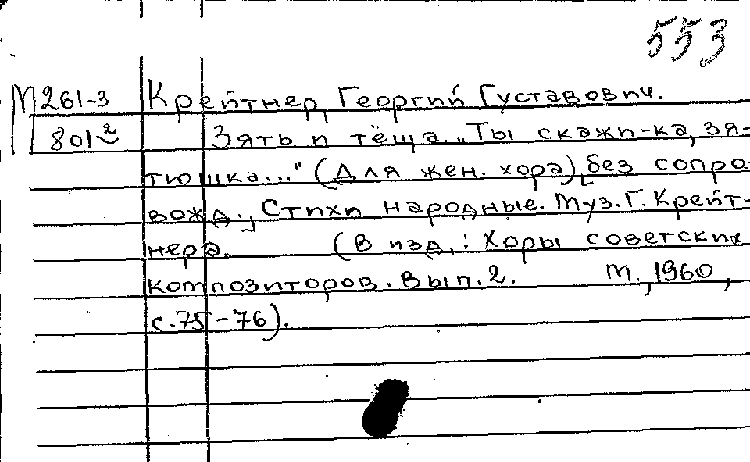 553
М 261-3 Крейтнер, Георгий Густавович.
801² Зять и тёща. „Ты скажи-ка, зя-
тюшка..." (Для жен. хора) [без сопро-
вожд.] Стихи народные. Муз. Г. Крейт-
нера. (В изд.: Хоры советских
композиторов. Вып. 2. М., 1960,
с. 75-76).